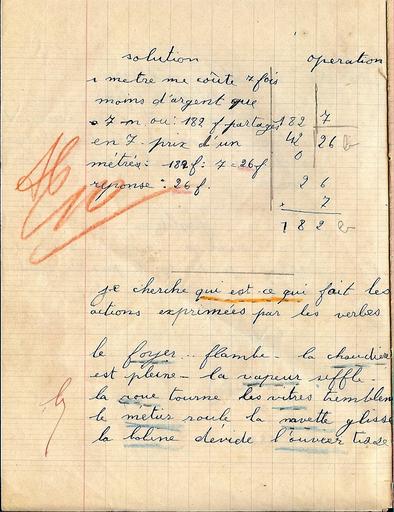 solution operation
1 metre me coûte 7 fois
moins d'argent que
7 m ou: 182 f partagés
en 7. prix d'un
mètrés: 182 f: 7 = 26 f
réponse: 26 f.
182 7
42 26 b
0
26
× 7
182 b
je cherche qui est-ce qui fait les
actions exprimées par les verbes
le foyer.. flambe - la chaudière
est pleine - la vapeur siffle -
la roue tourne les vitres tremblen
le métier roule la navette glisse
la bobine dévide l'ouvrier tisse